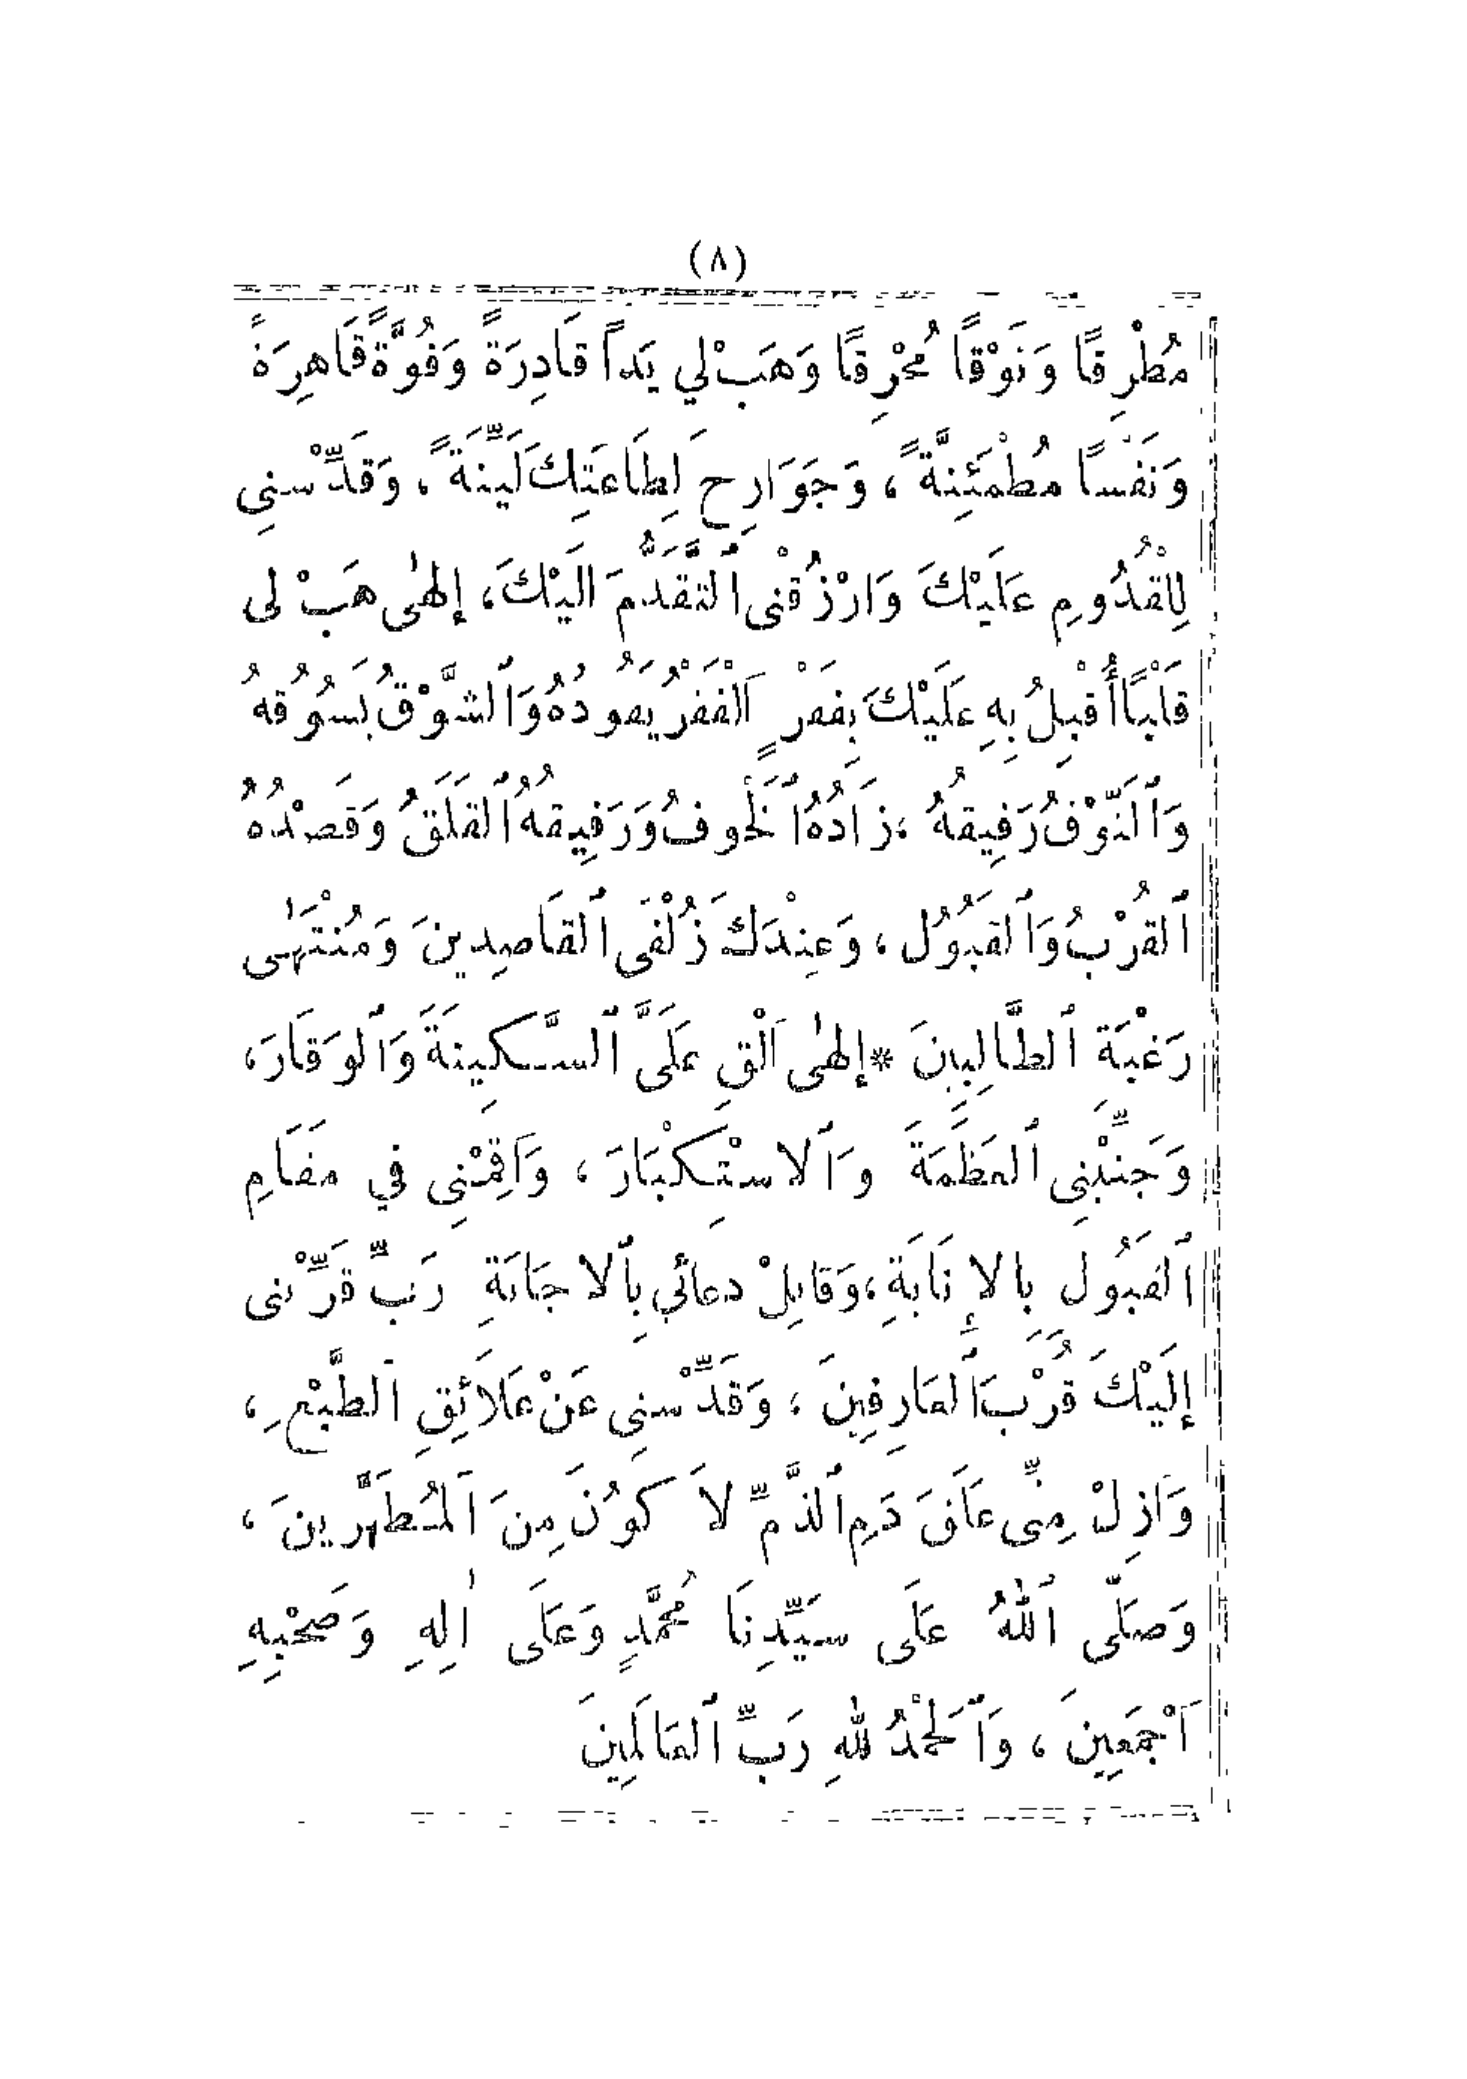 (٨)
مُطْرِقًا وَنَوْقًا مُحْرِقًا وَهَبْ لي يَداً قَادِرَةً وَقُوَّةً قَاهِرَةً
وَنَفْسًا مُطْمَئِنَّةً، وَجَوَارِحِ لِطَاعَتِكَ لَيِّنَةً، وَقَدِّسْنِي
لِلْقُدُومِ عَلَيْكَ وَارْزُقْنى ٱلتَّقَدُّمَ اَلَيْكَ، إلهٰى هَبْ لى
قَلْبًا أُقْبِلُ بِهِ عَلَيْكَ بِفَقْرٍ اَلْفَقْرُ يَقُودُهُ وَٱلشَّوْقُ يَسُوُقهُ
وَٱلتَّوْقُ رَفِيقهُ، زَادُهُ ٱلْخَوفُ وَرَفِيقهُ ٱلقَلَقُ وَقَصْدُهُ
ٱلقُرْبُ وَٱلقَبُوُل، وَعِنْدَكَ زُلْفَى ٱلقَاصِدِينَ وَمُنْتَهٰى
رَغْبَةِ ٱلطَّالِبِينَ * إلهٰى اَلْقِ عَلَىَّ ٱلسَّكِينَةَ وَٱلوَقَارَ،
وَجَنِّبْنِى ٱلعَظَمَةَ وَٱلاسْتِكْبَارَ، وَاَقِمْنِى في مَقَامِ
ٱلقَبُولِ بالإنَابَةِ، وَقَابِلْ دعائي بِٱلاجَابَةِ رَبِّ قَرِّبْنى
إلَيْكَ قُرْبَ ٱلعَارِفِينَ، وَقَدِّسْنِى عَنْ عَلَائِقِ ٱلطَّبْعِ،
وَاَزِلْ مِنِّى عَلَقَ دَمِ ٱلذَّمِّ لاَكوُنَ مِنَ ٱلمُطَهَّرِينَ،
وَصَلّى ٱللهُ عَلَى سَيِّدِنَا مُحَمَّدٍ وَعَلَى اٰلِهِ وَصَحْبِهِ
اَجْمَعِينَ، وَٱلحَمْدُ للهِ رَبِّ ٱلعَالَمِينَ